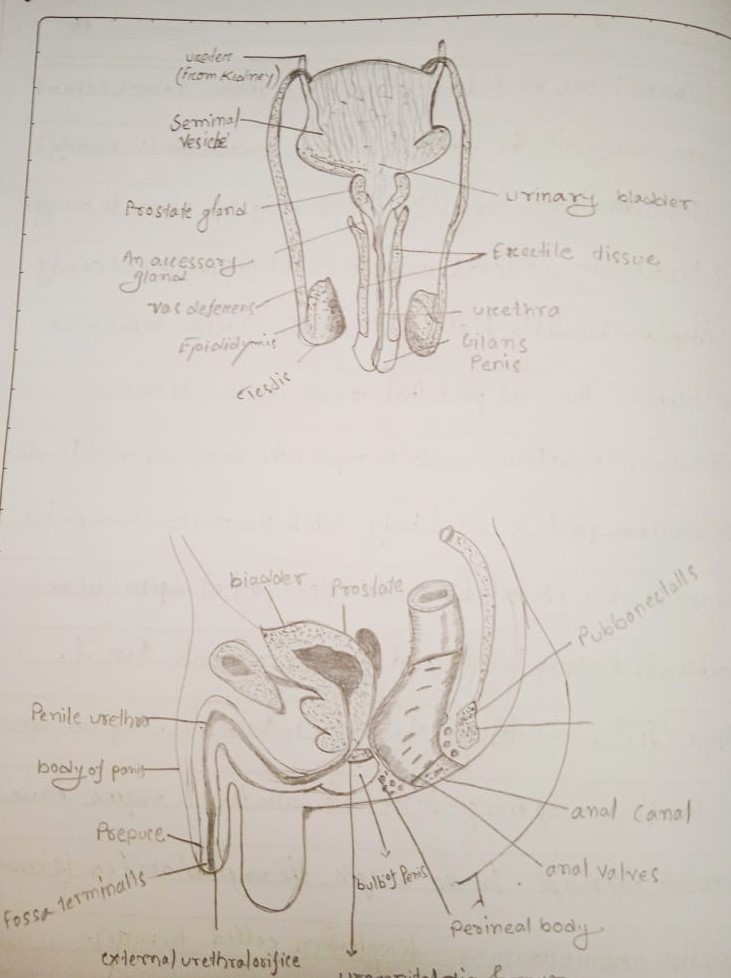 ureters
(from Kidney)
Seminal
vesicle
Prostate gland
An accessory
gland
vas deferens
Epididymis
Testis
urinary bladder
Erectile dissue
urethra
Glans
Penis
bladder
Prostate
Pubbonectalls
Penile urethra
body of penis
Prepuce
Fossa terminalls
external urethral orifice
bulb of Penis
Perineal body
anal valves
anal canal